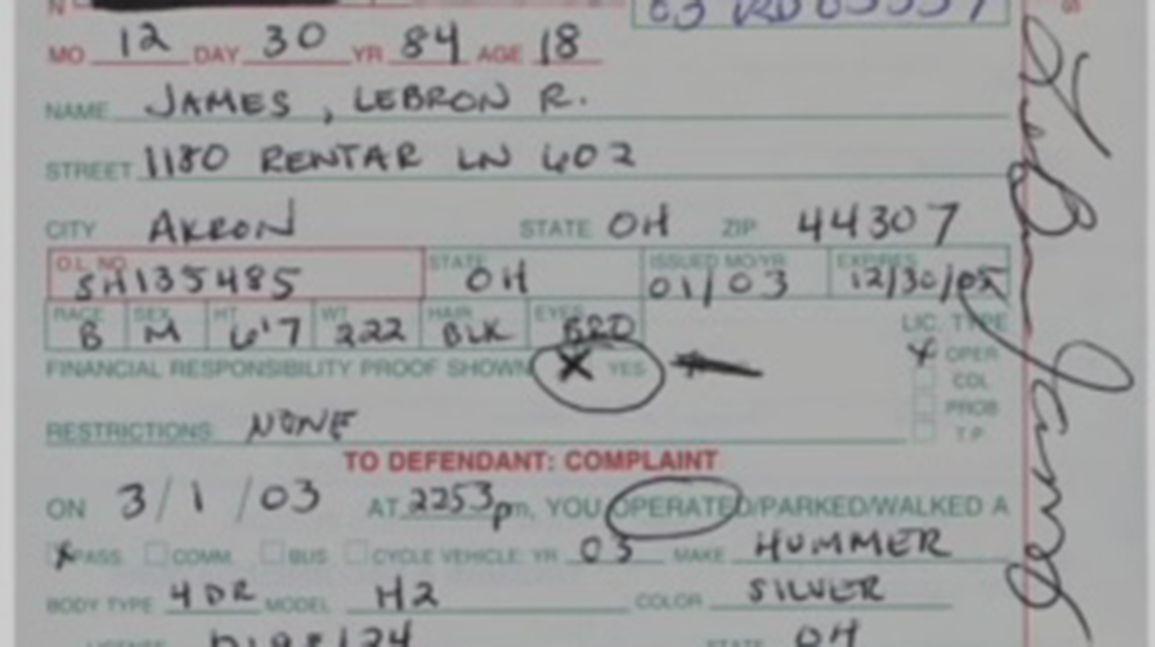 MO 12 DAY 30 YR 84 AGE 18
NAME JAMES, LEBRON R.
STREET 1180 RENTAR LN 602
CITY AKRON STATE OH ZIP 44307
O.L. NO. SH135485 STATE OH ISSUED MO/YR 01/03 EXPIRES 12/30/05
RACE B SEX M HT 6'7 WT 222 HAIR BLK EYES BRO
LIC. TYPE
FINANCIAL RESPONSIBILITY PROOF SHOWN X YES X OPER
CDL
PROB
RESTRICTIONS NONE T.P
TO DEFENDANT: COMPLAINT
ON 3/1/03 AT 2253 pm, YOU OPERATED/PARKED/WALKED A
X PASS COMM. BUS CYCLE VEHICLE: YR 03 MAKE HUMMER
BODY TYPE 4DR MODEL H2 COLOR SILVER
LICENSE STATE OH
LeBron James